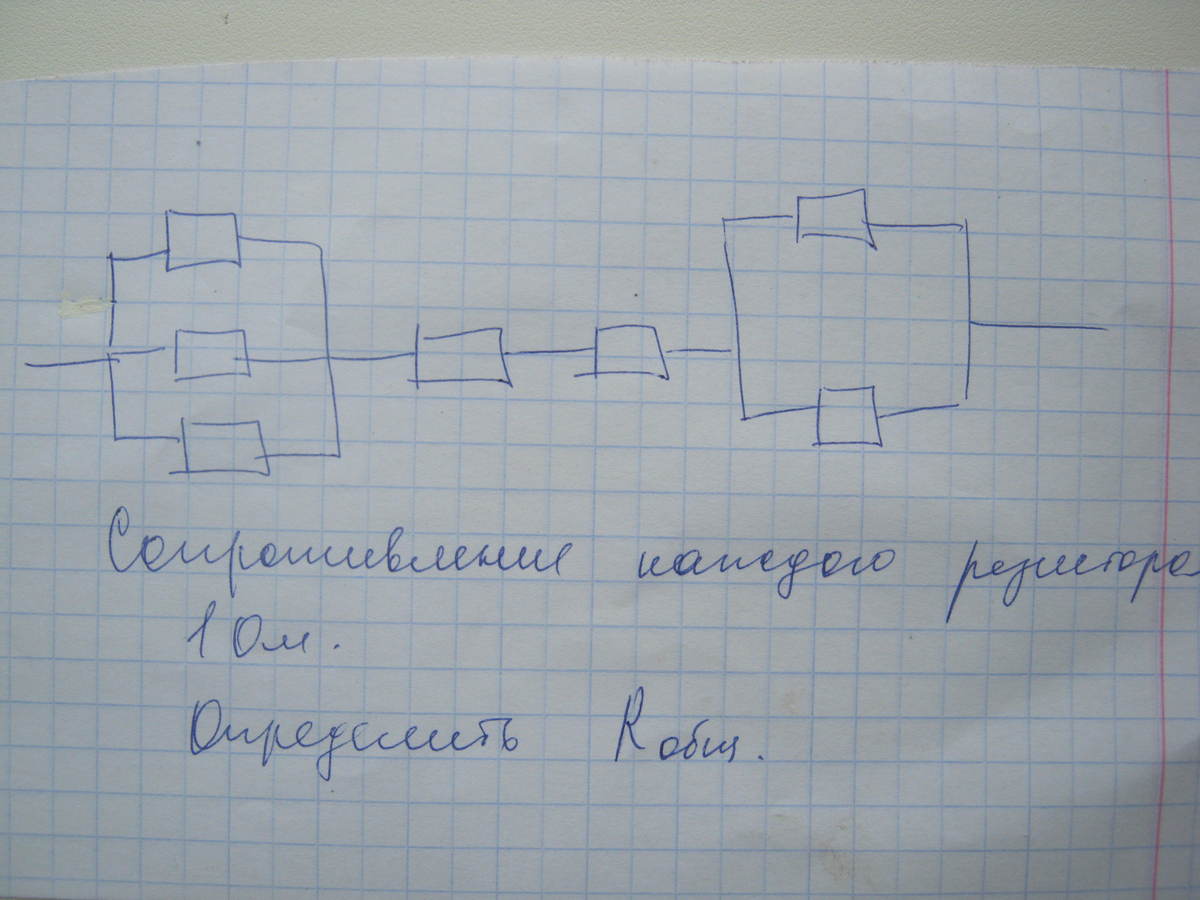 Сопротивление каждого резистора
1 Ом.
Определить Rобщ.